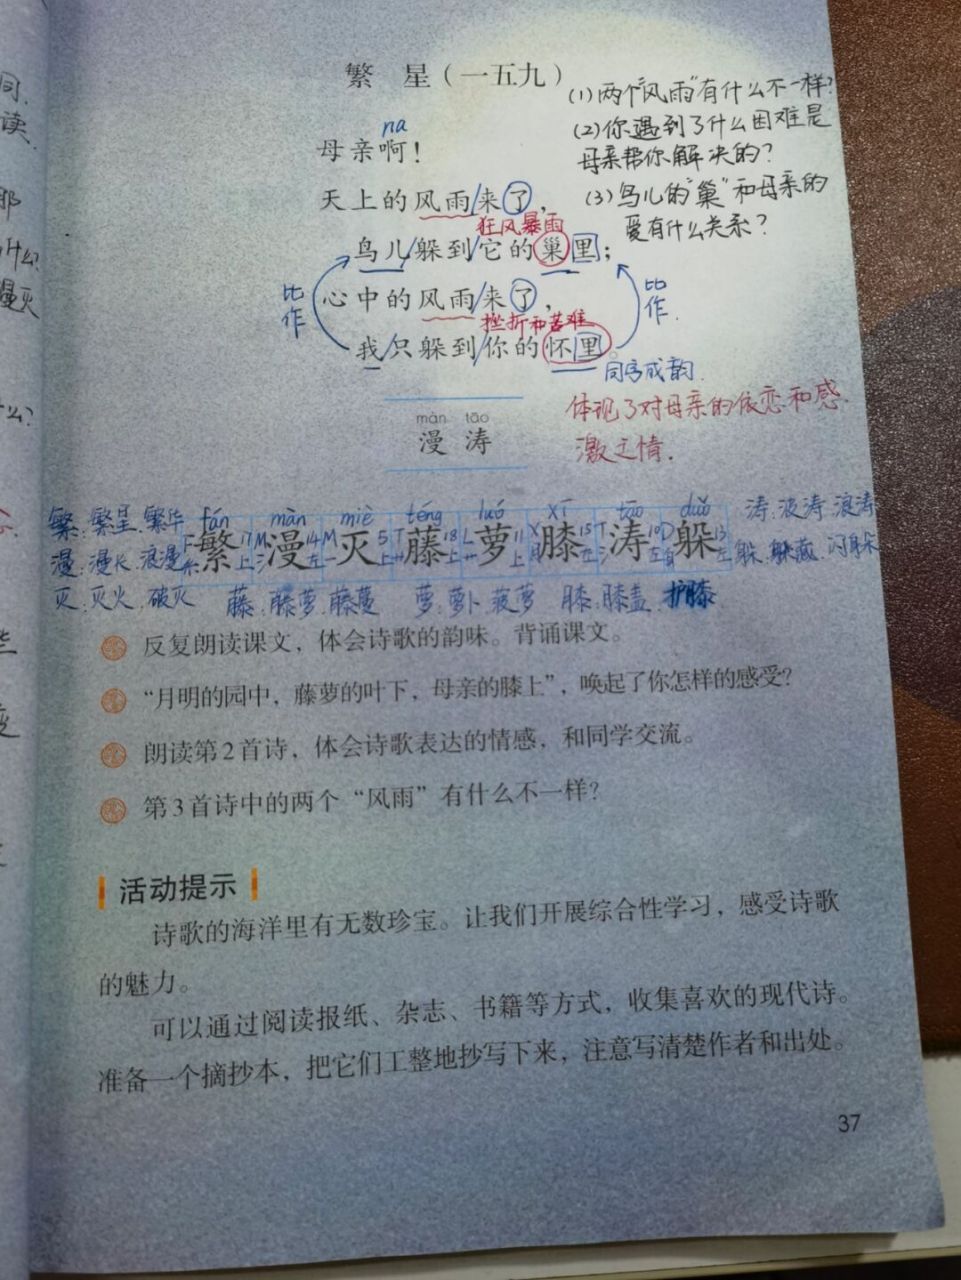 繁 星（一五九）
(1)两个"风雨"有什么不一样？
na
母亲啊！
(2)你遇到了什么困难是
母亲帮你解决的？
天上的风雨/来了，
(3)鸟儿的"巢"和母亲的
爱有什么关系？
狂风暴雨
鸟儿/躲到/它的巢里；
比作
心中的风雨/来了，
比作.
挫折和苦难
我/只躲到/你的怀里。
同字成韵.
体现了对母亲的依恋和感
激之情.
màn tāo
漫 涛
繁:繁星.繁华
漫:漫长.浪漫
灭:灭火.破灭
fán màn miè téng luó xī tāo duǒ
繁漫灭藤萝膝涛躲
涛:波涛.浪涛
躲.躲藏.闪躲
藤:藤萝.藤蔓 萝:萝卜.菠萝 膝:膝盖.护膝
反复朗读课文，体会诗歌的韵味。背诵课文。
“月明的园中，藤萝的叶下，母亲的膝上”，唤起了你怎样的感受？
朗读第2首诗，体会诗歌表达的情感，和同学交流。
第3首诗中的两个“风雨”有什么不一样？
活动提示
诗歌的海洋里有无数珍宝。让我们开展综合性学习，感受诗歌
的魅力。
可以通过阅读报纸、杂志、书籍等方式，收集喜欢的现代诗。
准备一个摘抄本，把它们工整地抄写下来，注意写清楚作者和出处。
37